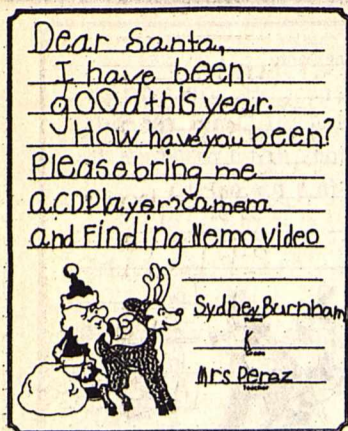 Dear Santa,
I have been
good this year.
How have you been?
Please bring me
a CD Player, camera
and Finding Nemo video
Sydney Burnham
K
Mrs Peraz
Teacher